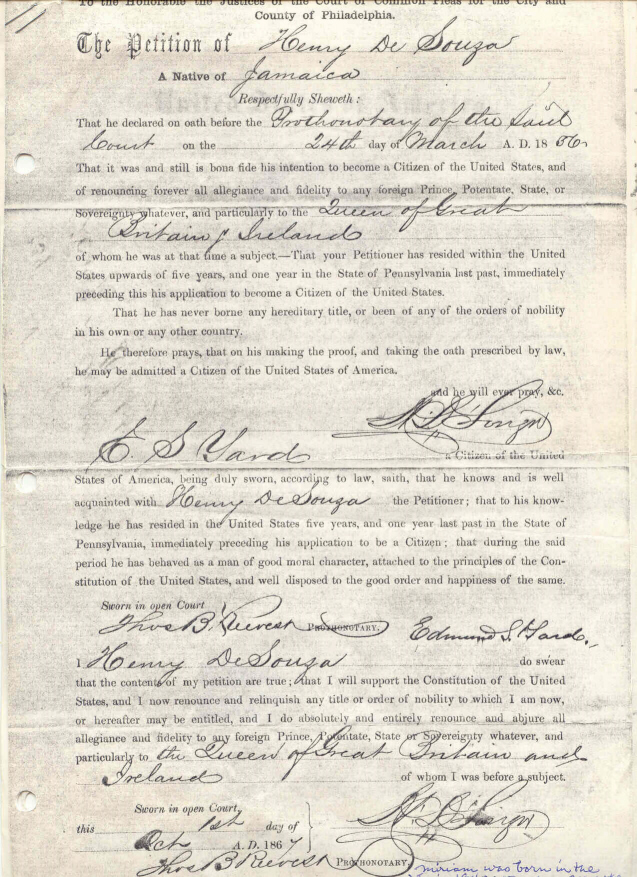 To the Honorable the Justices of the Court of Common Pleas for the City and
County of Philadelphia.
The Petition of Henry De Souza
A Native of Jamaica
Respectfully Sheweth:
That he declared on oath before the Prothonotary of the said
Court on the 24th day of March A. D. 18 56
That it was and still is bona fide his intention to become a Citizen of the United States, and
of renouncing forever all allegiance and fidelity to any foreign Prince, Potentate, State, or
Sovereignty whatever, and particularly to the Queen of Great
Britain & Ireland
of whom he was at that time a subject.—That your Petitioner has resided within the United
States upwards of five years, and one year in the State of Pennsylvania last past, immediately
preceding this his application to become a Citizen of the United States.
That he has never borne any hereditary title, or been of any of the orders of nobility
in his own or any other country.
He therefore prays, that on his making the proof, and taking the oath prescribed by law,
he may be admitted a Citizen of the United States of America.
and he will ever pray, &c.
E. S Yard
a Citizen of the United
States of America, being duly sworn, according to law, saith, that he knows and is well
acquainted with Henry DeSouza the Petitioner; that to his know-
ledge he has resided in the United States five years, and one year last past in the State of
Pennsylvania, immediately preceding his application to be a Citizen; that during the said
period he has behaved as a man of good moral character, attached to the principles of the Con-
stitution of the United States, and well disposed to the good order and happiness of the same.
Sworn in open Court
Thos B. Reeves PROTHONOTARY. Edmund S. Yard.
I Henry DeSouza do swear
that the contents of my petition are true; that I will support the Constitution of the United
States, and I now renounce and relinquish any title or order of nobility to which I am now,
or hereafter may be entitled, and I do absolutely and entirely renounce and abjure all
allegiance and fidelity to any foreign Prince, Potentate, State or Sovereignty whatever, and
particularly to the Queen of Great Britain and
Ireland of whom I was before a subject.
Sworn in open Court,
this 1st day of
Oct A. D. 1867
Thos B Reeves PROTHONOTARY.
Miriam was born in the